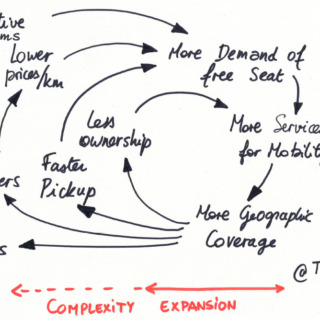 Lower
prices/km
More Demand of
free Seat
Less
ownership
More Services
for Mobility
Faster
Pickup
More Geographic
Coverage
@
COMPLEXITY EXPANSION